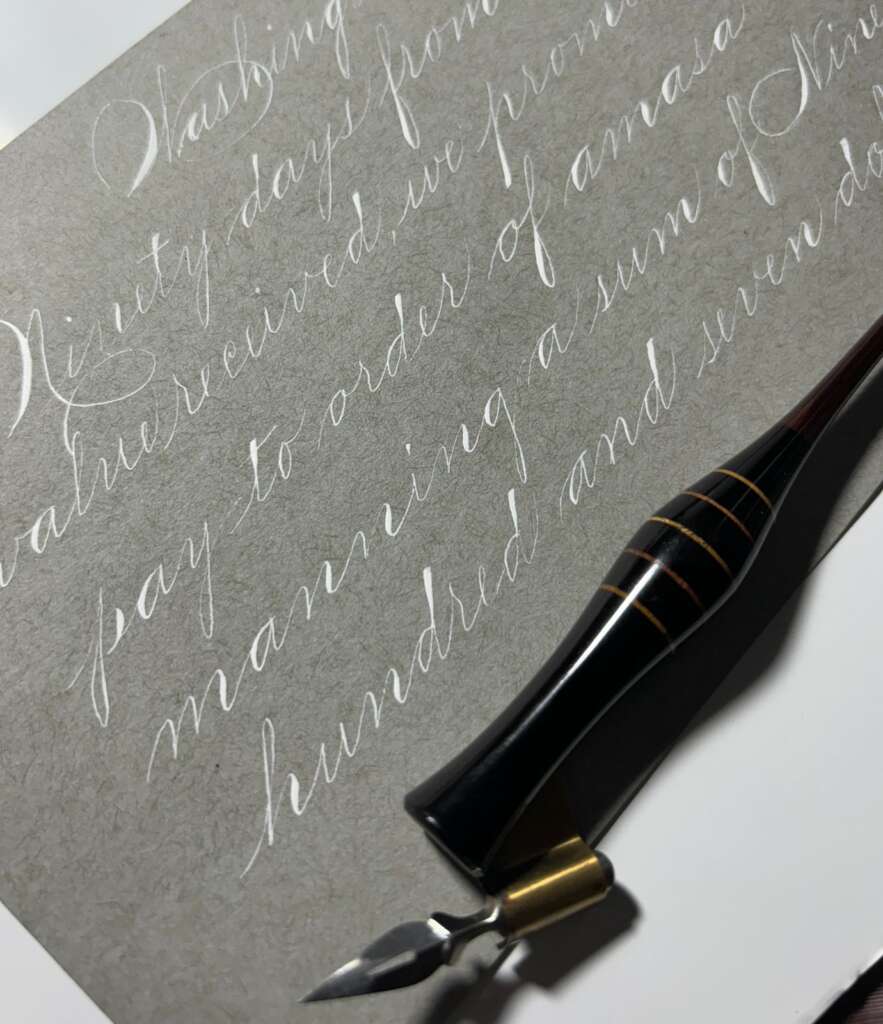 Washing
Ninety days from
value received, we prom
pay to order of amasa
manning a sum of Nine
hundred and seven dol